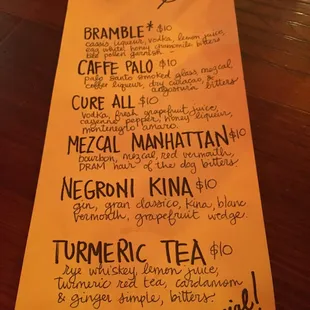 BRAMBLE* $10
cassis liqueur, vodka, lemon juice,
egg white, honey chamomile, bitters
bee pollen garnish
CAFFE PALO $10
palo santo smoked glass, mezcal
coffee liqueur, dry curacao &
angostura bitters
CURE ALL $10
vodka, fresh grapefruit juice,
cayenne pepper, honey liqueur,
montenegro amaro.
MEZCAL MANHATTAN $10
bourbon, mezcal, red vermouth,
DRAM hair of the dog bitters.
NEGRONI KINA $10
gin, gran classico, kina, blanc
vermouth, grapefruit wedge.
TURMERIC TEA $10
rye whiskey, lemon juice,
turmeric red tea, cardamom
& ginger simple, bitters.